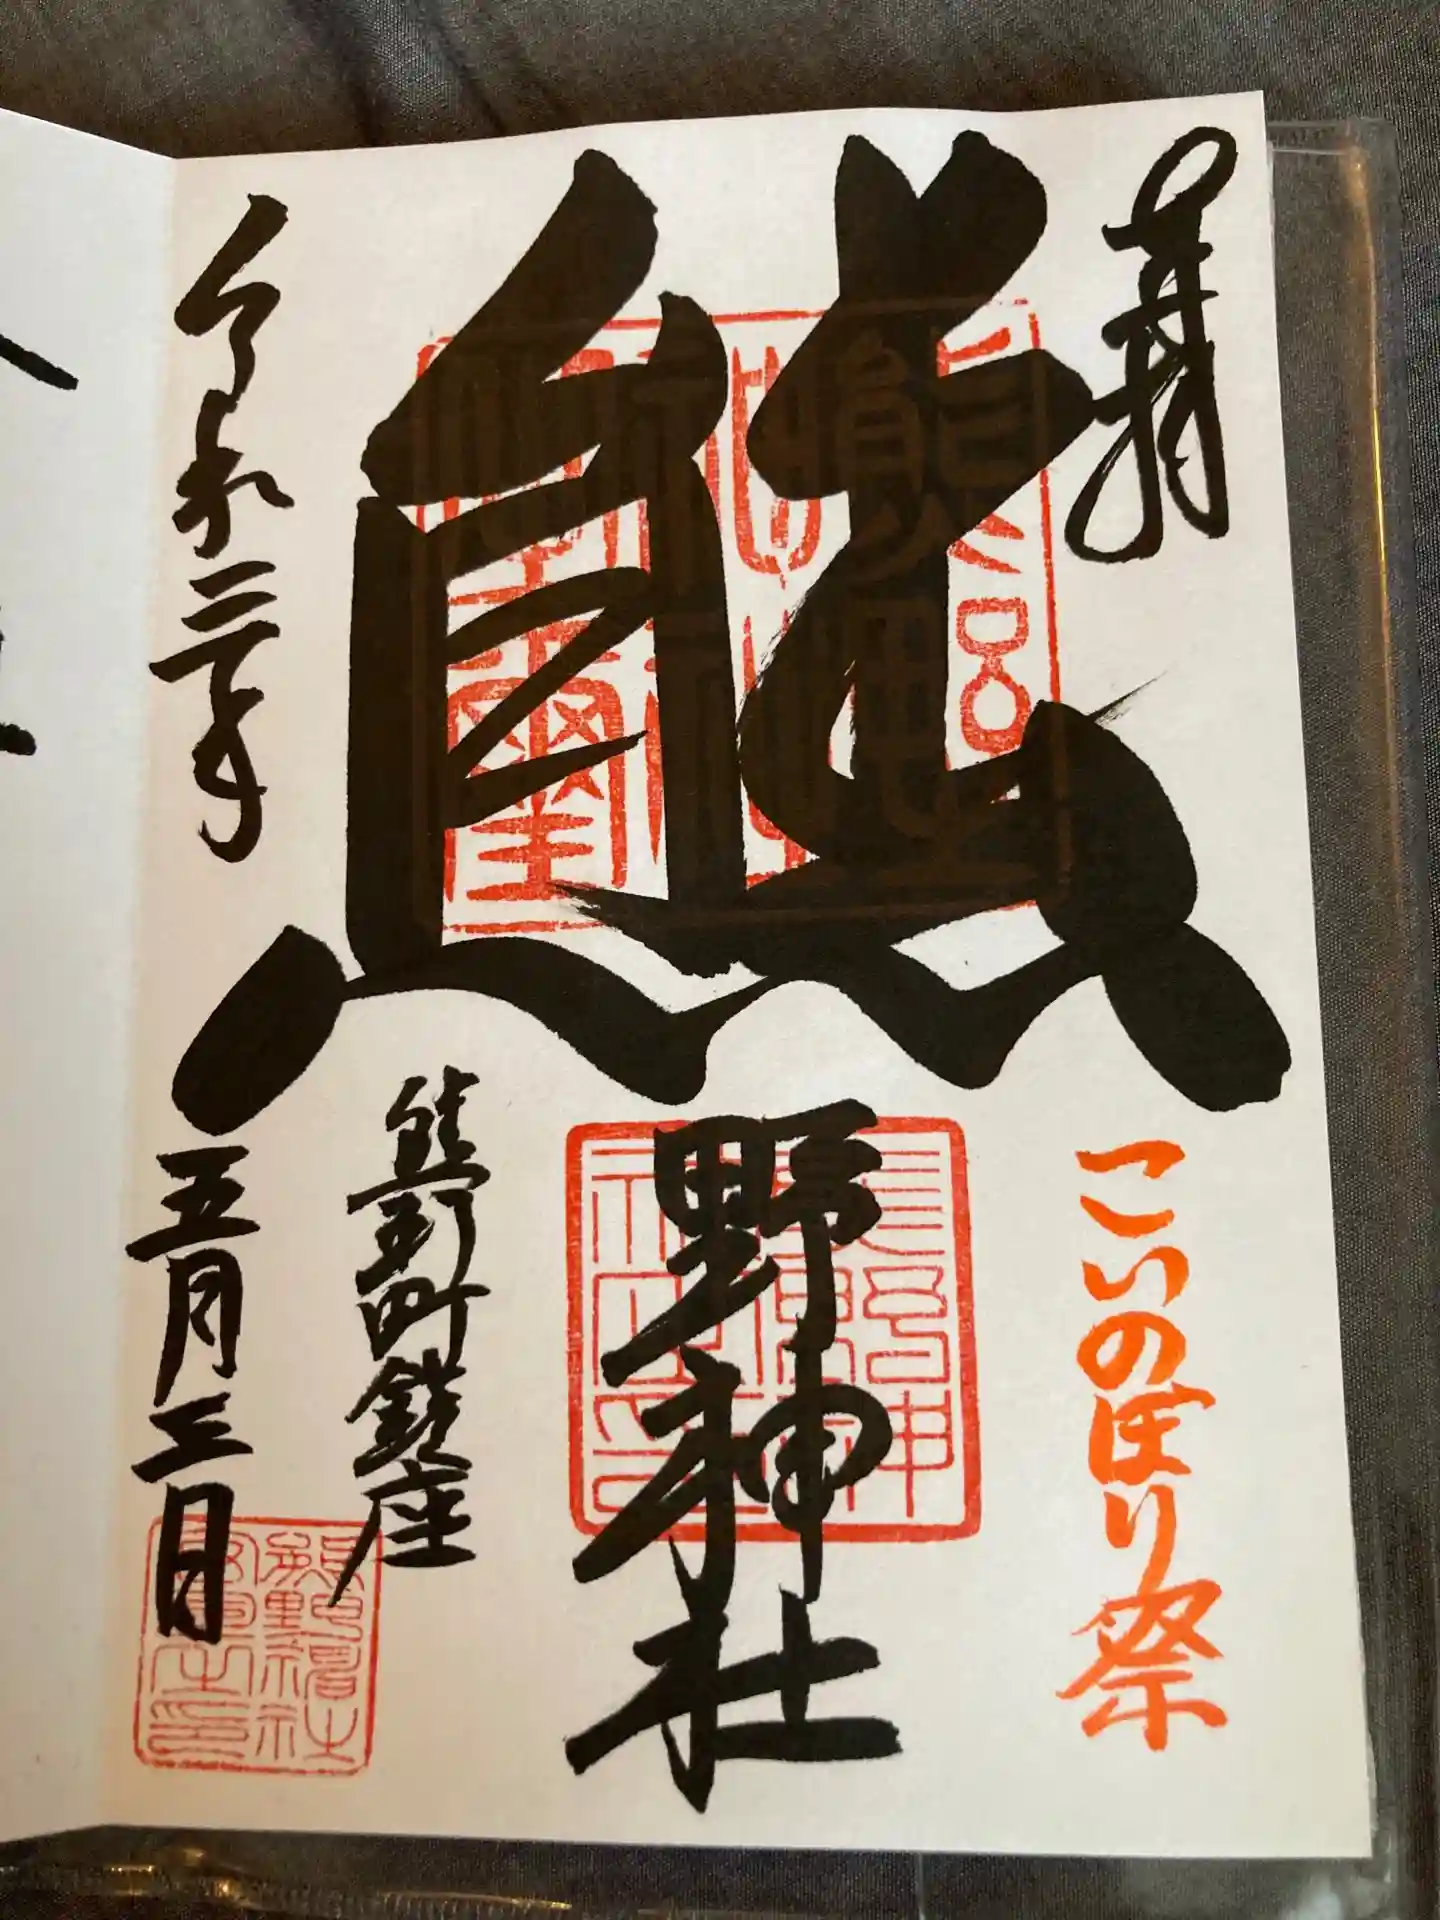 奉拝
こいのぼり祭
熊野神社
熊野町鎮座
令和二年五月三日